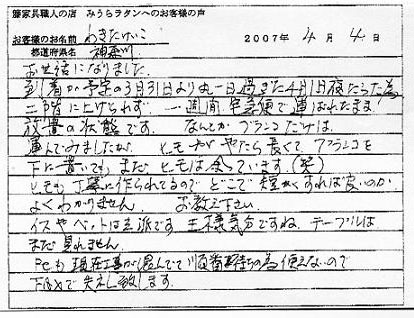 籐家具職人の店 みうらラタンへのお客様の声
お客様のお名前 わきたけいこ 2007年 4月 4日
都道府県名 神奈川
お世話になりました。
到着が予定の3月31日より丸一日過ぎた4月1日夜だった為
二階に上げられず 一週間 宅急便で運ばれたまま
放置の状態です。 なんとか ブランコだけは
運んでみましたが、 ヒモがやたら長くて ブランコを
下に置いても まだ ヒモは余っています。(笑)
ヒモも丁寧に作られてるので どこで短かくすれば良いのか
よくわかりません。 お教え下さい。
イスやベットは立派です。王様気分ですね。テーブルは
まだ見れません。
PCも現在工事が混んでて順番待ちの為使えないので
FAXで失礼致します。